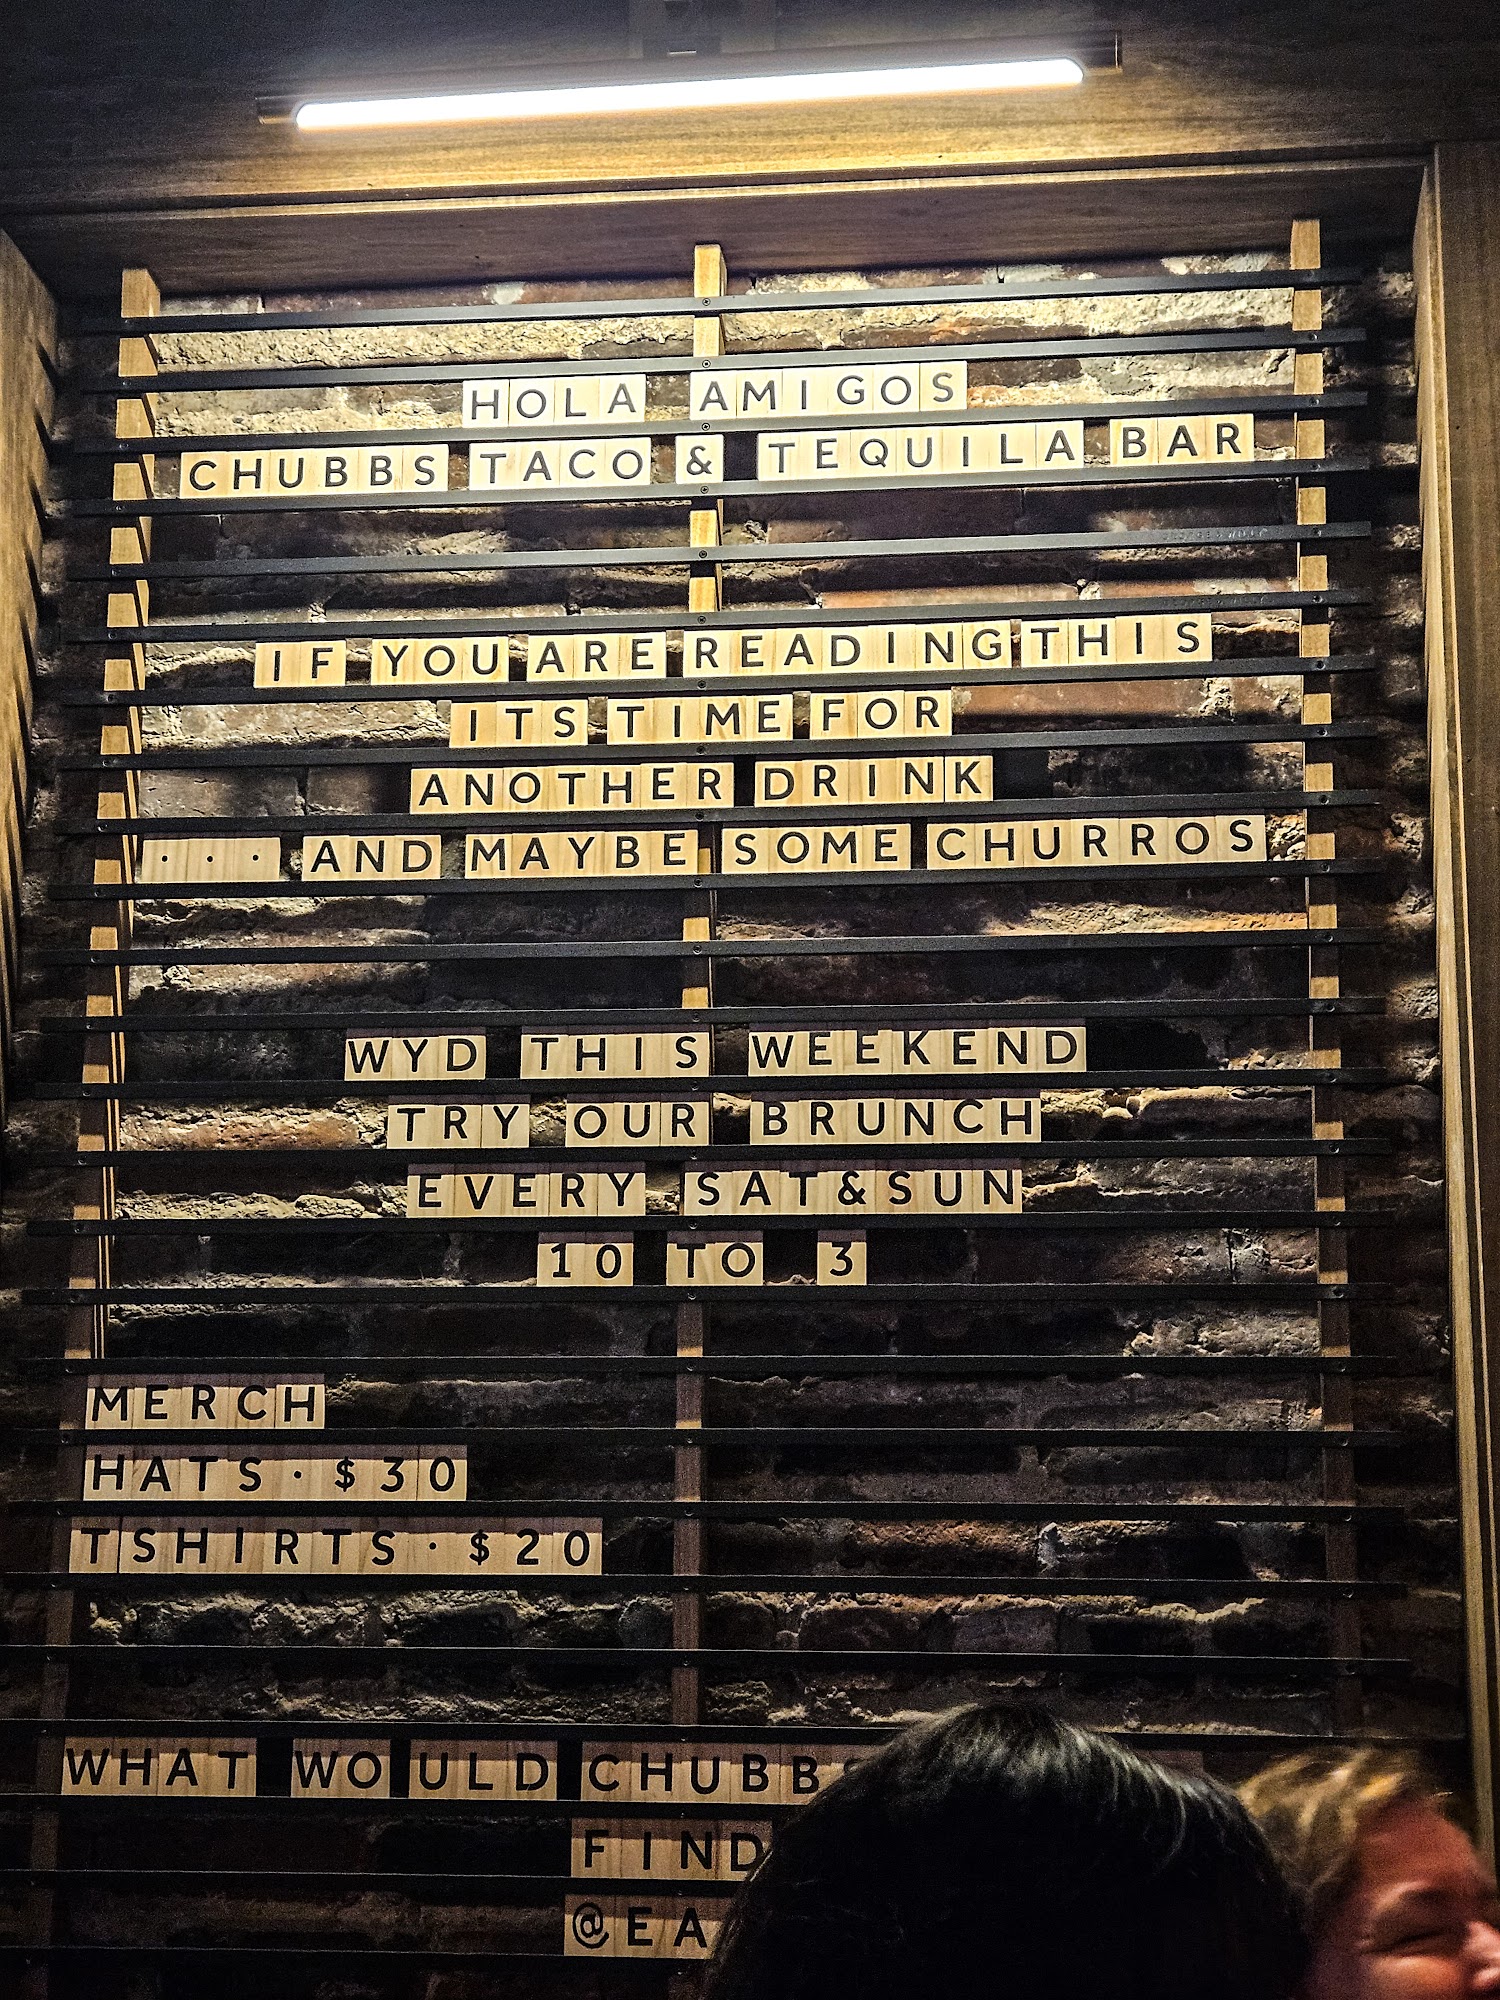 HOLA AMIGOS
CHUBBS TACO & TEQUILA BAR
IF YOU ARE READING THIS
ITS TIME FOR
ANOTHER DRINK
... AND MAYBE SOME CHURROS
WYD THIS WEEKEND
TRY OUR BRUNCH
EVERY SAT&SUN
10 TO 3
MERCH
HATS · $30
TSHIRTS · $20
WHAT WOULD CHUBBS
FIND
@EA